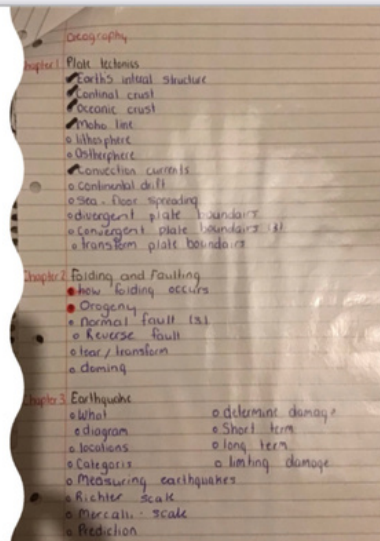 Geography
Chapter 1 Plate tectonics
Earth's interal structure
Continal crust
Oceanic crust
Moho line
lithosphere
Ostherphere
Convection currents
continental drift
Sea-floor spreading
divergent plate boundairs
Convergent plate boundairs (3)
transform plate boundairs
Chapter 2 Folding and Faulting
how folding occurs
Orogeny
normal fault (3)
Reverse fault
tear/transform
doming
Chapter 3 Earthquake
What
diagram
locations
Categoris
Measuring earthquakes
Richter scale
Mercali. scale
Prediction
determine damage
Short term
long term
limiting damage